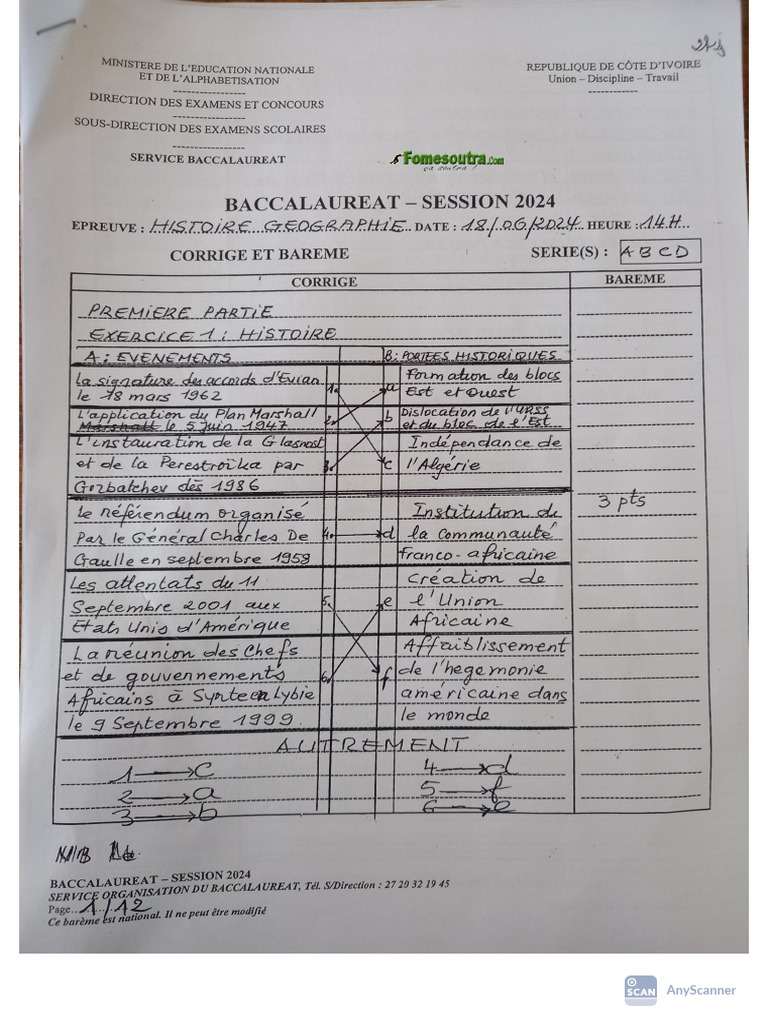 MINISTERE DE L'EDUCATION NATIONALE
ET DE L'ALPHABETISATION
-----------------
DIRECTION DES EXAMENS ET CONCOURS
-----------------
SOUS-DIRECTION DES EXAMENS SCOLAIRES
-----------------
SERVICE BACCALAUREAT
REPUBLIQUE DE CÔTE D'IVOIRE
Union – Discipline – Travail
------------
Fomesoutra.com
ça soutra !
BACCALAUREAT – SESSION 2024
EPREUVE : HISTOIRE GEOGRAPHIE DATE : 18/06/2024 HEURE : 14H
CORRIGE ET BAREME SERIE(S) : A B C D
CORRIGE BAREME
PREMIERE PARTIE
EXERCICE 1 : HISTOIRE
A : EVENEMENTS B : PORTEES HISTORIQUES
La signature des accords d'Evian
le 18 mars 1962
1.
a
Formation des blocs
Est et Ouest
L'application du Plan Marshall
Marshall le 5 juin 1947
2.
b
Dislocation de l'URSS
et du bloc de l'Est
L'instauration de la Glasnost
et de la Perestroïka par
Gorbatchev dès 1986
3.
c
Indépendance de
l'Algérie
Le référendum organisé
Par le Général Charles De
Gaulle en septembre 1958
4.
d
Institution de
la communauté
Franco-africaine
3 pts
Les attentats du 11
Septembre 2001 aux
Etats Unis d'Amérique
5.
e
Création de
l'Union
Africaine
La réunion des Chefs
et de gouvernements
Africains à Syrte en Lybie
le 9 Septembre 1999
6.
f
Affaiblissement
de l'hegemonie
américaine dans
le monde
AUTREMENT
1 → c 4 → d
2 → a 5 → f
3 → b 6 → e
BACCALAUREAT – SESSION 2024
SERVICE ORGANISATION DU BACCALAUREAT, Tél. S/Direction : 27 20 32 19 45
Page...1/12
Ce barème est national. Il ne peut être modifié
SCAN AnyScanner